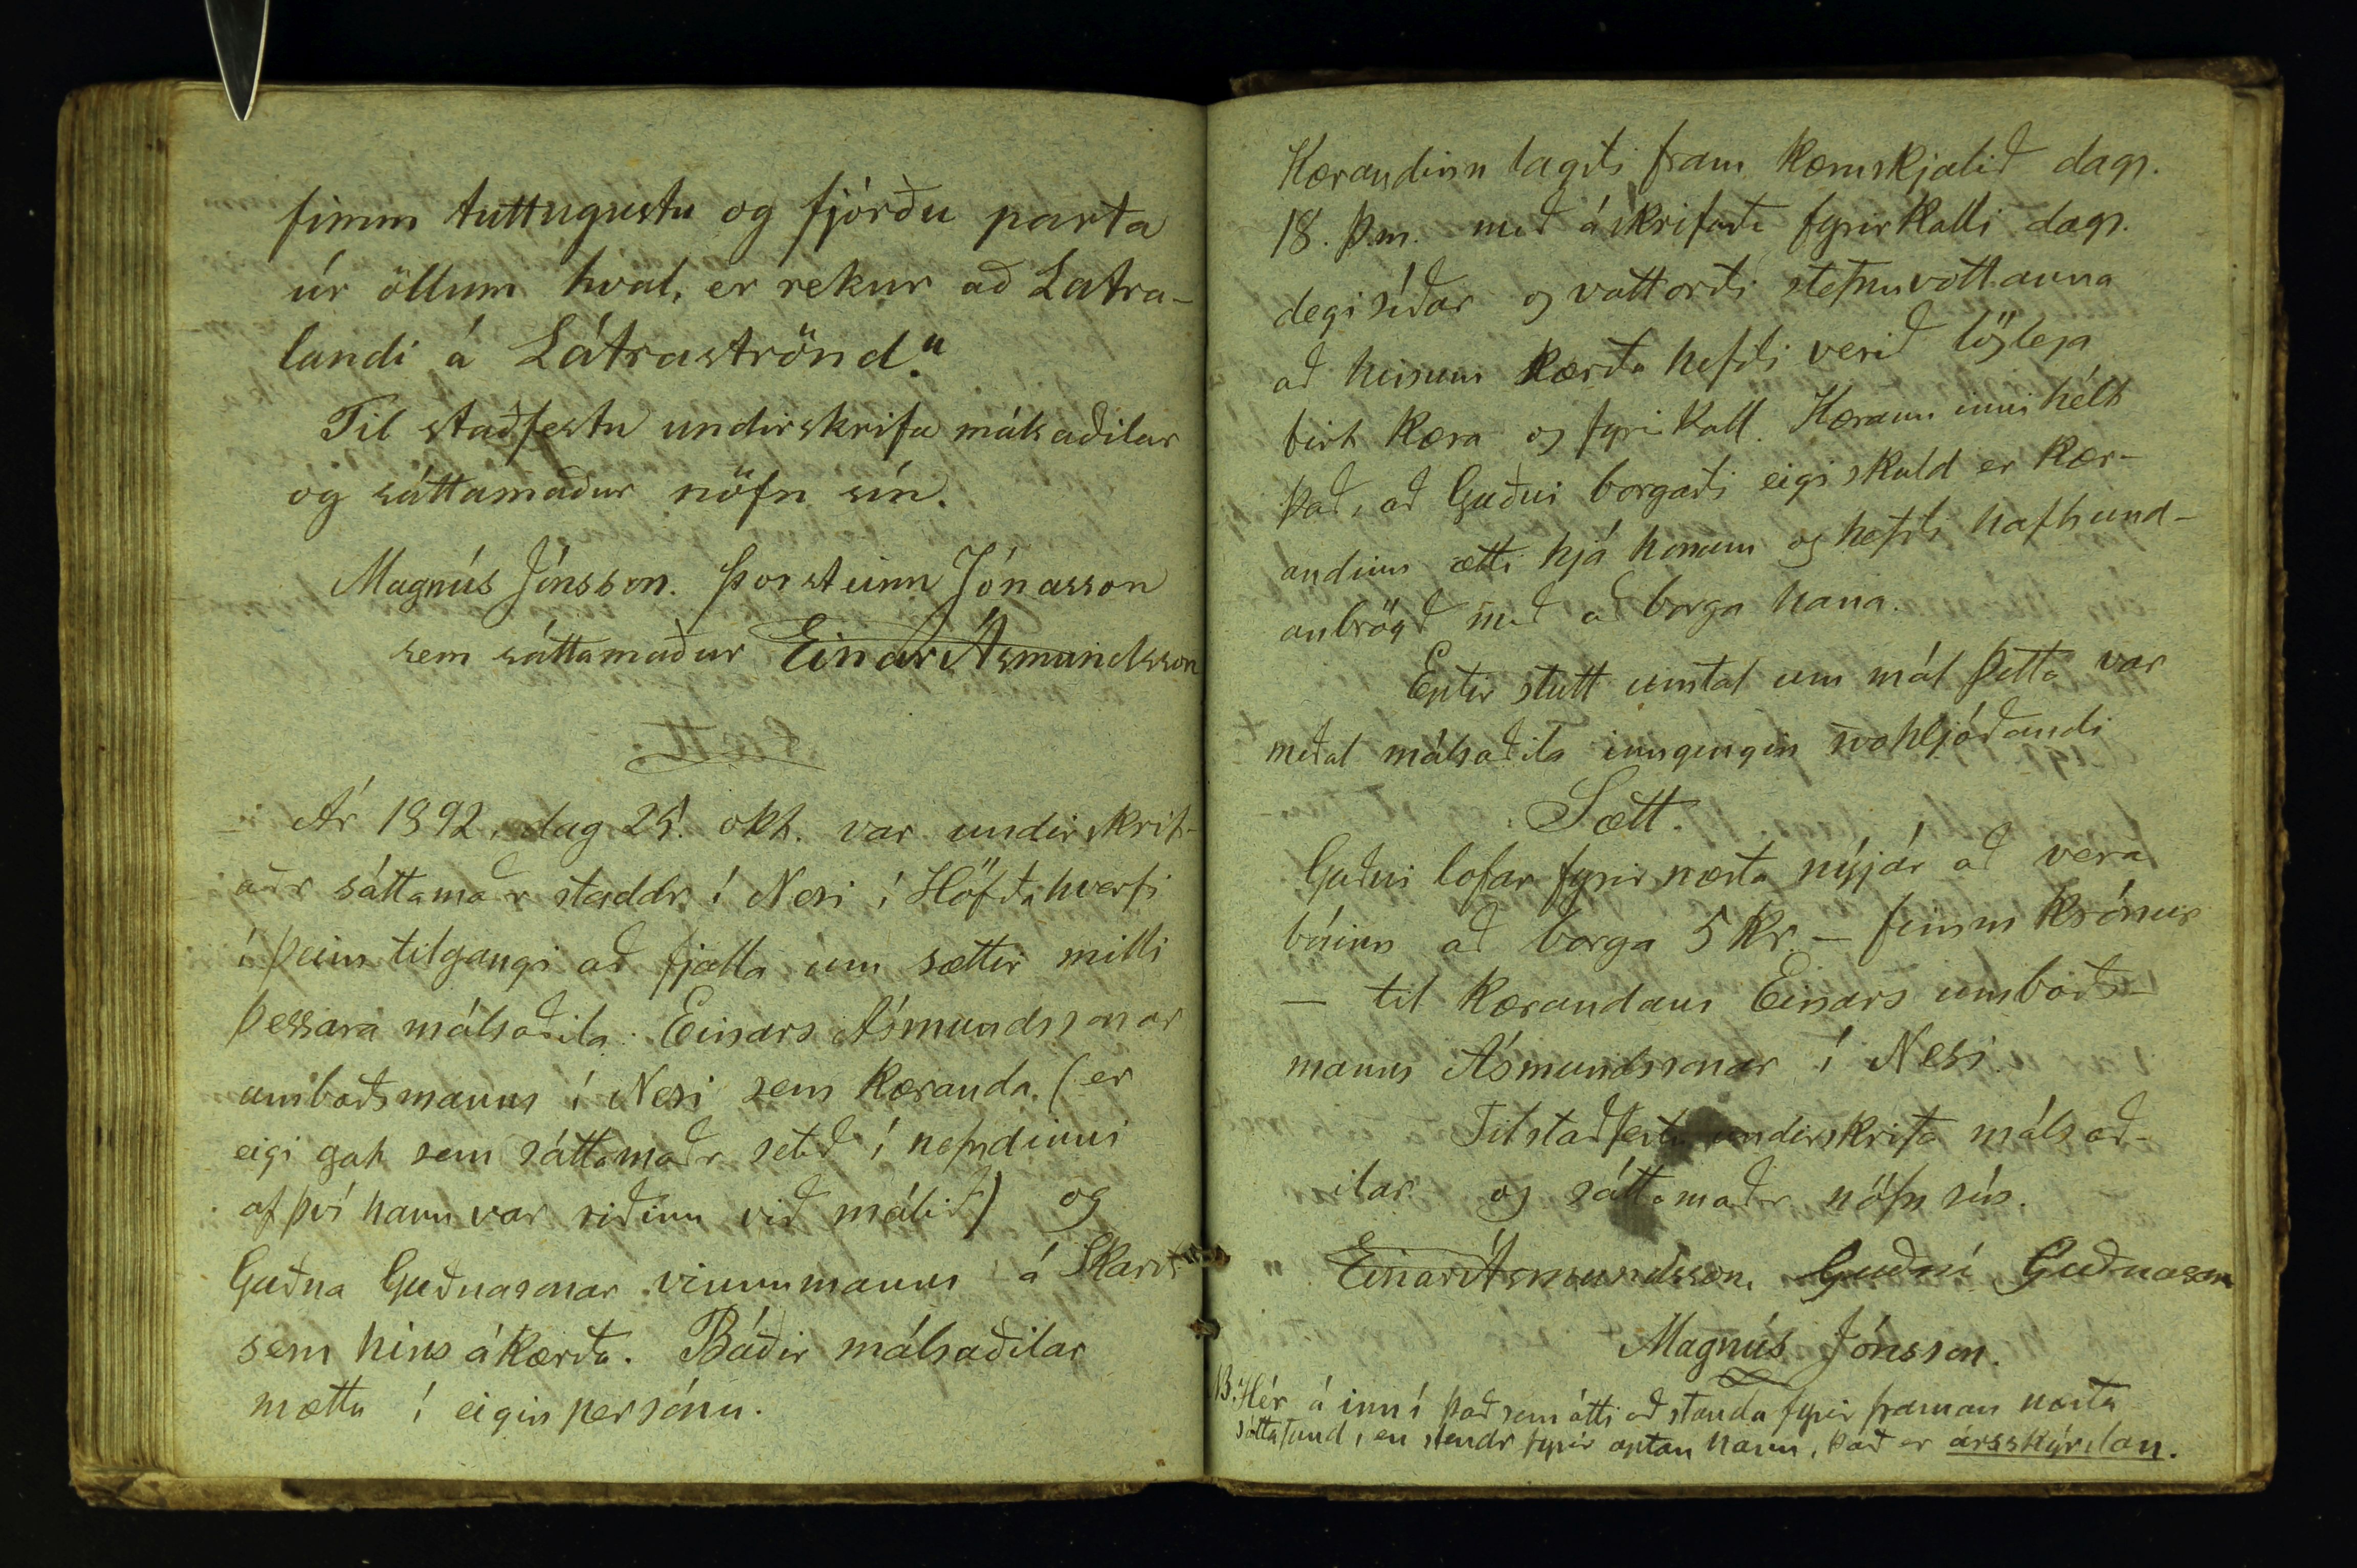 fimm tuttugustu og fjórðu parta
úr öllum hval, er rekur að Látra-
landi á Látraströnd."
Til staðfestu undirskrifa málsaðilar
og sáttamaður nöfn sín.
Magnús Jónsson. Þorsteinn Jónasson
sem sáttamaður Einar Ásmundsson
Ár 1892, dag 25. okt. var undirskrif-
aðr sáttamaðr staddr í Nesi í Höfðahverfi
í þeim tilgangi að fjalla um sættir milli
þessara málsaðila: Einars Ásmundssonar
umboðsmanns í Nesi sem kæranda (er
eigi gat sem sáttamaðr setið í nefndinni
af því hann var riðinn við málið) og
Guðna Guðnasonar vinnumanns á Skarði
sem hins ákærða. Báðir málsaðilar
mættu í eigin persónu.
Kærandinn lagði fram kæruskjalið dags.
18. þ.m. með áskrifuðu fyrirkalli dags.
degi síðar og vottorði stefnuvottanna
að hinum kærða hefði verið löglega
birt kæra og fyrirkall. Kærann innihélt
það, að Guðni borgaði eigi skuld er kær-
andinn ætti hjá honum og hefði haft und-
anbrögð með að borga hana.
Eptir stutt umtal um mál þetta var
meðal málsaðila inngengin svohljóðandi
Sætt.
Guðni lofar fyrir næsta nýjár að vera
búinn að borga 5 kr. – fimm krónur
– til kærandans Einars umboðs-
manns Ásmundssonar í Nesi.
Til staðfestu undirskrifa málsað-
ilar og sáttamaðr nöfn sín.
Einar Ásmundsson. Guðni Guðnason
Magnús Jónsson.
NB. Hér á inní það sem átti að standa fyrir framan næsta
sáttafund, en stendr fyrir aptan hann, það er ársskýrslan.